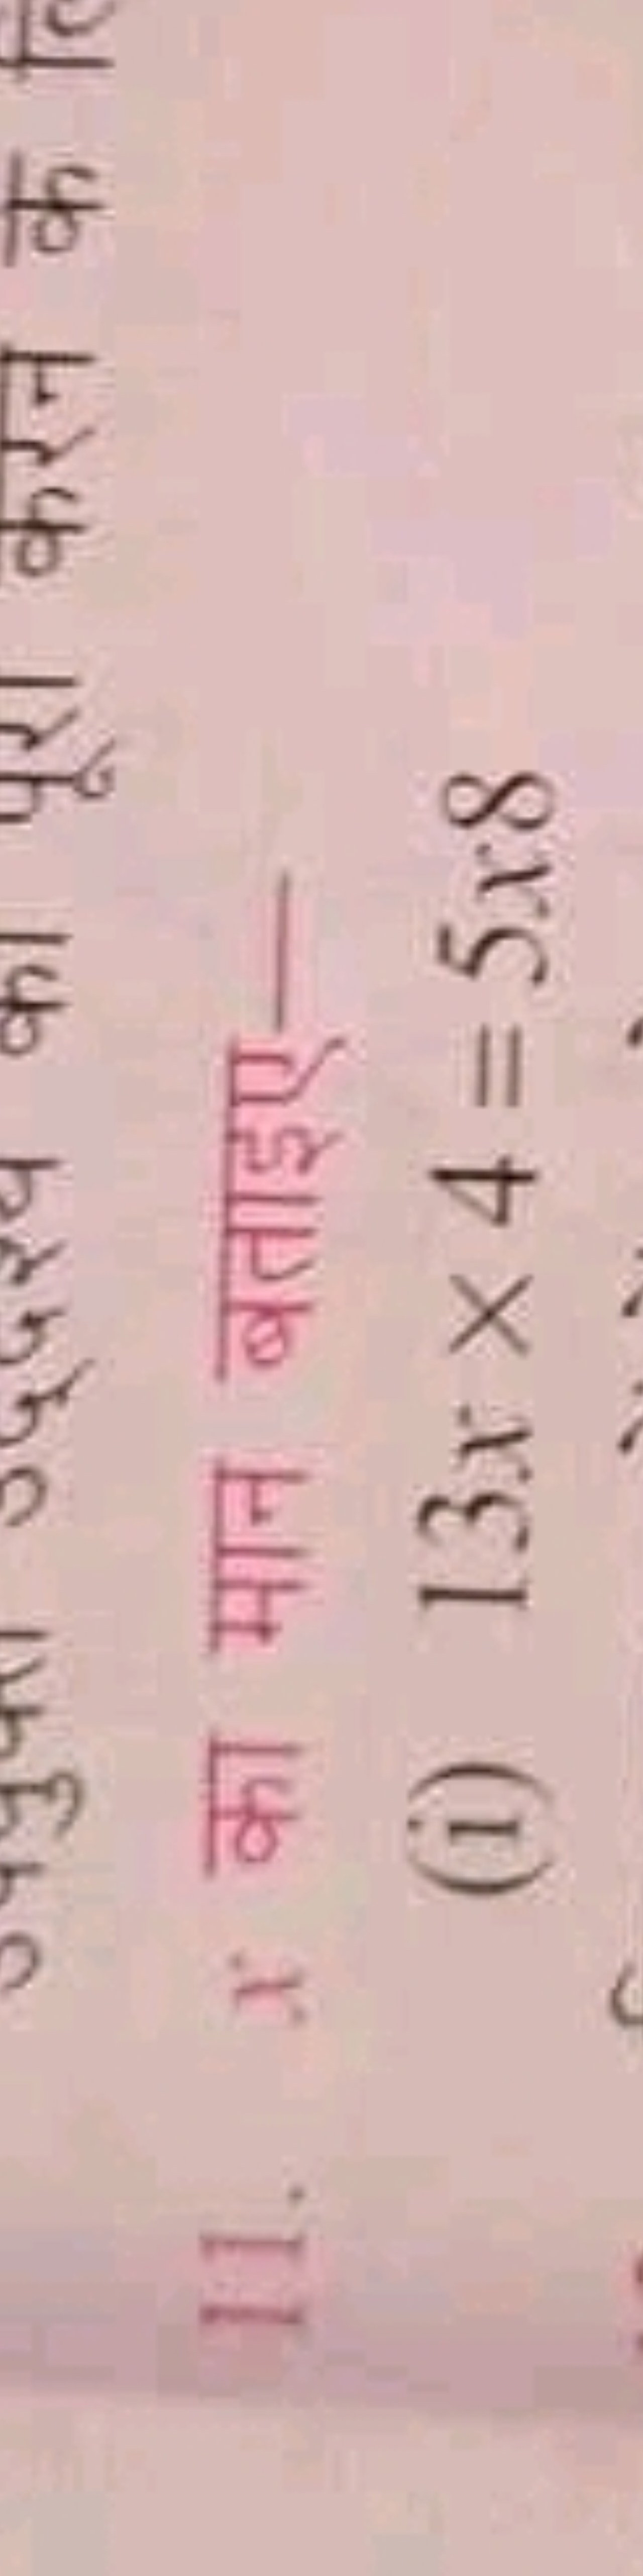 का पूरा करने के
11. x का मान बताइए—
(i) 13x × 4 = 5x8